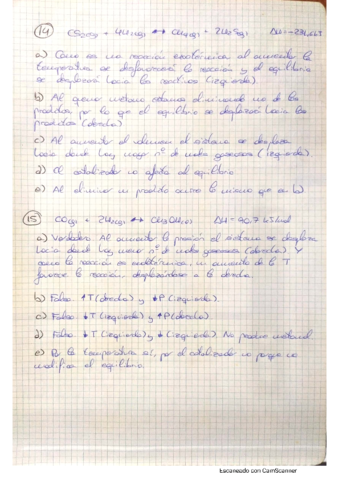 (14) CS2(g) + 4H2(g) ↔ CH4(g) + 2H2S(g) ΔH = -231 kJ
a) Como es una reacción exotérmica al aumentar la
temperatura se desfavorece la reacción y el equilibrio
se desplazará hacia los reactivos (izquierda).
b) Al quemar metano estamos eliminando uno de los
productos por lo que el equilibrio se desplazará hacia los
productos (derecha).
c) Al aumentar el volumen el sistema se desplaza
hacia donde hay mayor nº de moles gaseosos (izquierda).
d) El catalizador no afecta al equilibrio
e) Al eliminar un producto ocurre lo mismo que en b)
(15) CO(g) + 2H2(g) ↔ CH3OH(g) ΔH = 90.7 kJ/mol
a) Verdadero. Al aumentar la presión el sistema se desplaza
hacia donde hay menor nº de moles gaseosos (derecha). Y
como la reacción es endotérmica, un aumento de la T
favorece la reacción, desplazándose a la derecha.
b) Falso ↑T (derecha) y ↓P (izquierda).
c) Falso ↓T (izquierda) y ↑P (derecha).
d) Falso ↓T (izquierda) y ↓ (izquierda). No produce metanol.
e) la temperatura sí, por el catalizador no porque no
modifica el equilibrio.
Escaneado con CamScanner